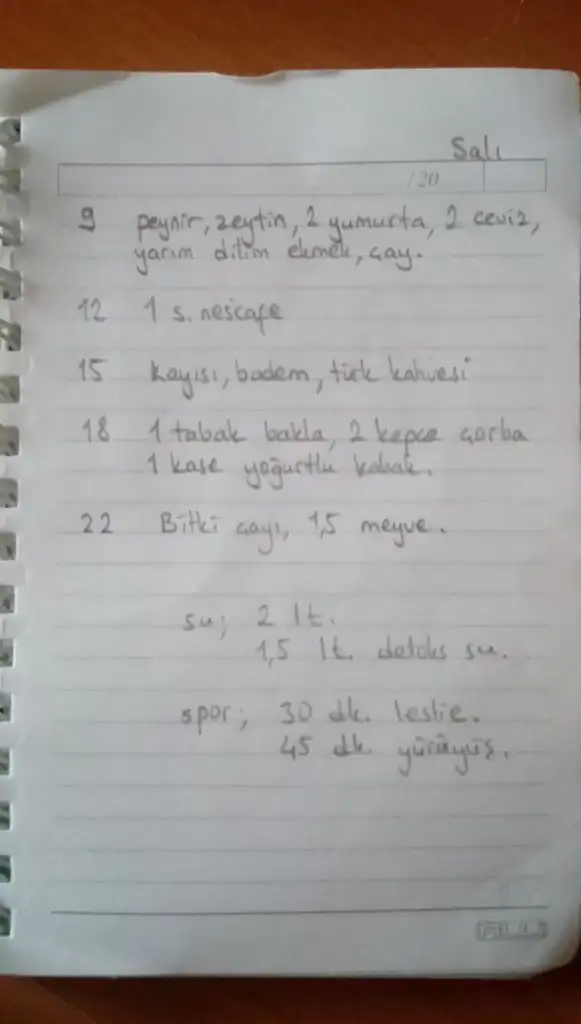 Salı
/20
9 peynir, zeytin, 2 yumurta, 2 ceviz,
yarım dilim ekmek, çay.
12 1 s. nescafe
15 kayısı, badem, türk kahvesi
18 1 tabak bakla, 2 kepçe çorba
1 kase yoğurtlu kabak.
22 Bitki çayı, 1,5 meyve.
su; 2 lt.
1,5 lt. detoks su.
spor; 30 dk. leslie.
45 dk. yürüyüş.